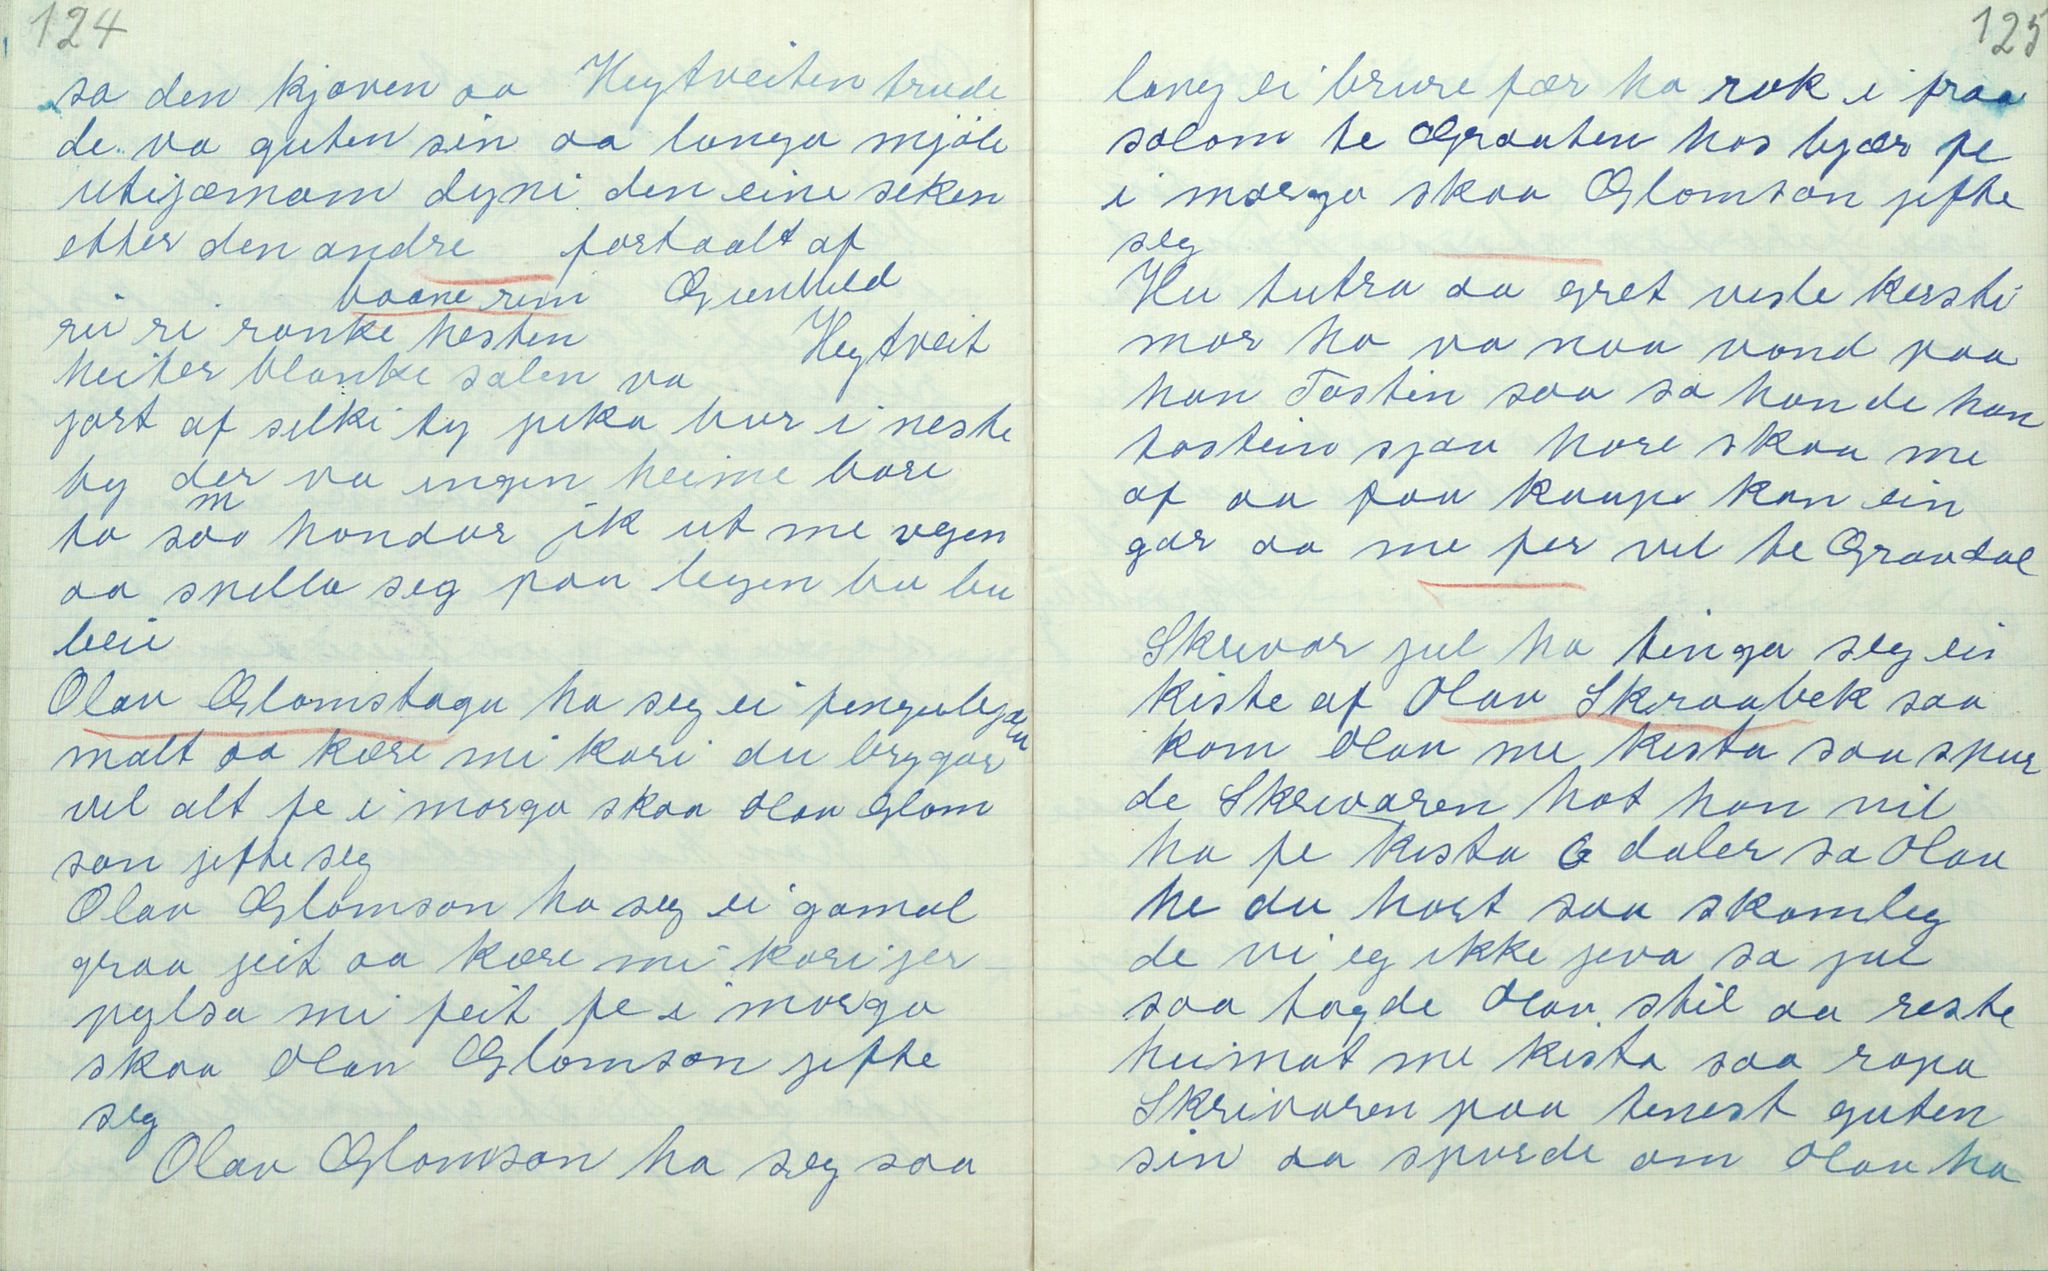 124
sa den kjøven aa Heytveiten trude
de va guten sin aa lunga mjöle
utijœmom dyni den eine seken
etter den andre fortaalt af
baane rim Gunhild
rii ri ranke hesten Heytveit
heiter blanke salen va
jort af silki ty jeka bur i neste
by der va ingen heime bare
to som hondar jik ut me vegen
aa snella seg paa legen bu bu
beii
Olav Glomstaga ha seg ei
malt aa kœre mi kari du brygar
vel alt fe i morga skaa Olav Glom
son jefte seg
Olav Glomson ha seg ei gamal
graa jeit aa kœre mi kari jer
pylsa mi feit fe i morga
skaa Olav Glomson jefte
seg
Olav Glomson ha seg saa
125
lang ei brure fær ha rak i fraa
salom te Graaten hos byær fe
i mœrga skaa Glomson jefte
seg
Hu tutra aa gret vesle kersti
mor ha va naa vond paa
han Tostin saa sa han de han
tostein sjaa hore skaa me
af aa faa kaupe kan ein
gar aa me fer vel te Graadal
Skrivar jul ha tinga seg ei
kiste af Olav Skraabek saa
kom Olav me kista saa spur
de Skrivaren hot han vil
ha fe kista 6 daler sa Olav
he du hort saa skamleg
de vi eg ikke jeva sa jul
saa tagde Olav stil aa reste
heimat me kista saa ropa
Skrivaren paa tenest guten
sin aa spurde om Olav ha